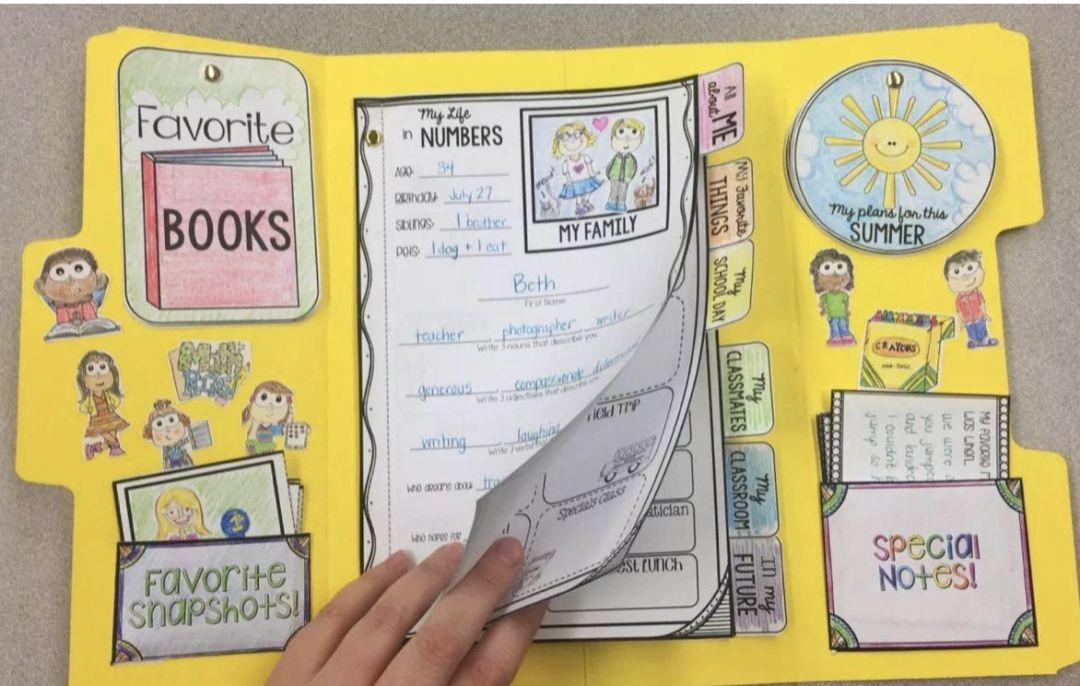 Favorite
BOOKS
My Life
in NUMBERS
AGE: 34
BIRTHDAY: July 27
SIBLINGS: 1 brother
PETS: 1 dog + 1 cat
MY FAMILY
Beth
First Name
teacher, photographer, writer
Write 3 nouns that describe you
generous, compassionate,
Write 3 adjectives that describe you
writing, laughing
Write 3 verbs
who dreams about
who hopes for
Field Trip
Specials Class
est Lunch
All about ME
My Favorite THINGS
My SCHOOL DAY
My CLASSMATES
My CLASSROOM
In my FUTURE
My plans for this
SUMMER
CRAYONS
My favorite
was when
we were
you jumped
and landed
I couldn't
Favorite
Snapshots!
Special
Notes!